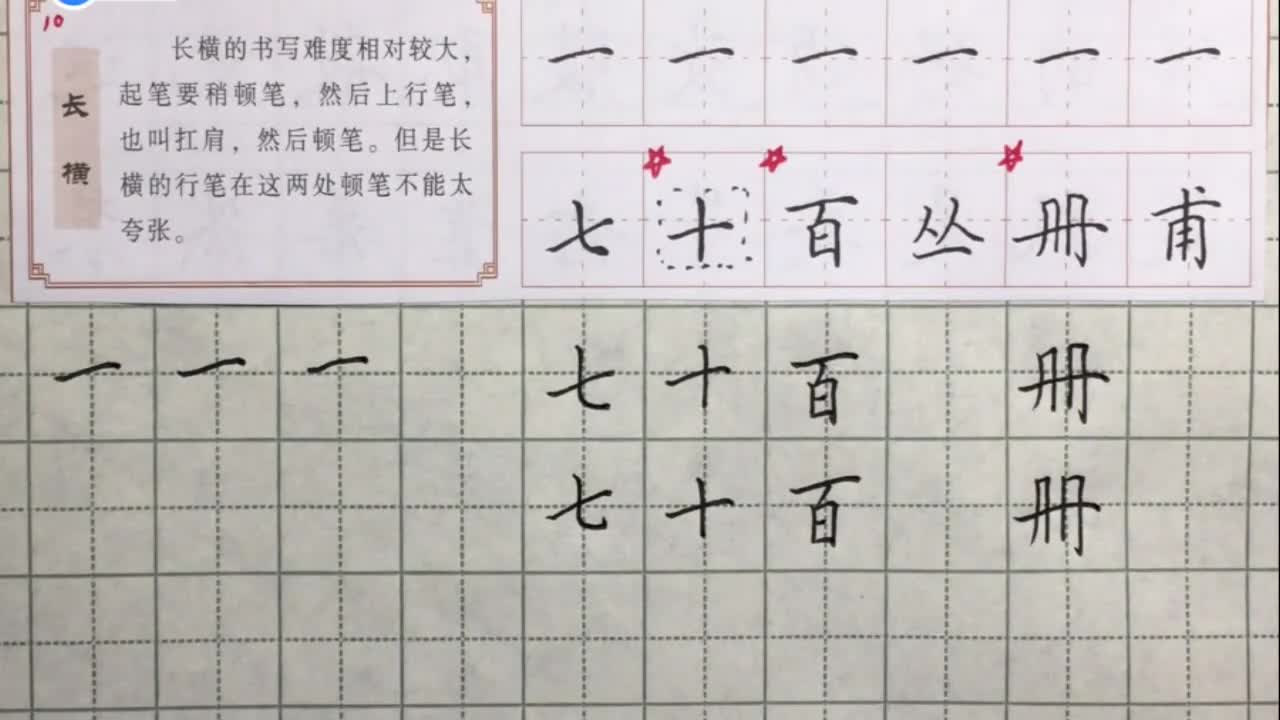 10
长横
长横的书写难度相对较大，
起笔要稍顿笔，然后上行笔，
也叫扛肩，然后顿笔。但是长
横的行笔在这两处顿笔不能太
夸张。
一 一 一 一 一 一
七 十 百 丛 册 甫
一 一 一 七 十 百 册
七 十 百 册